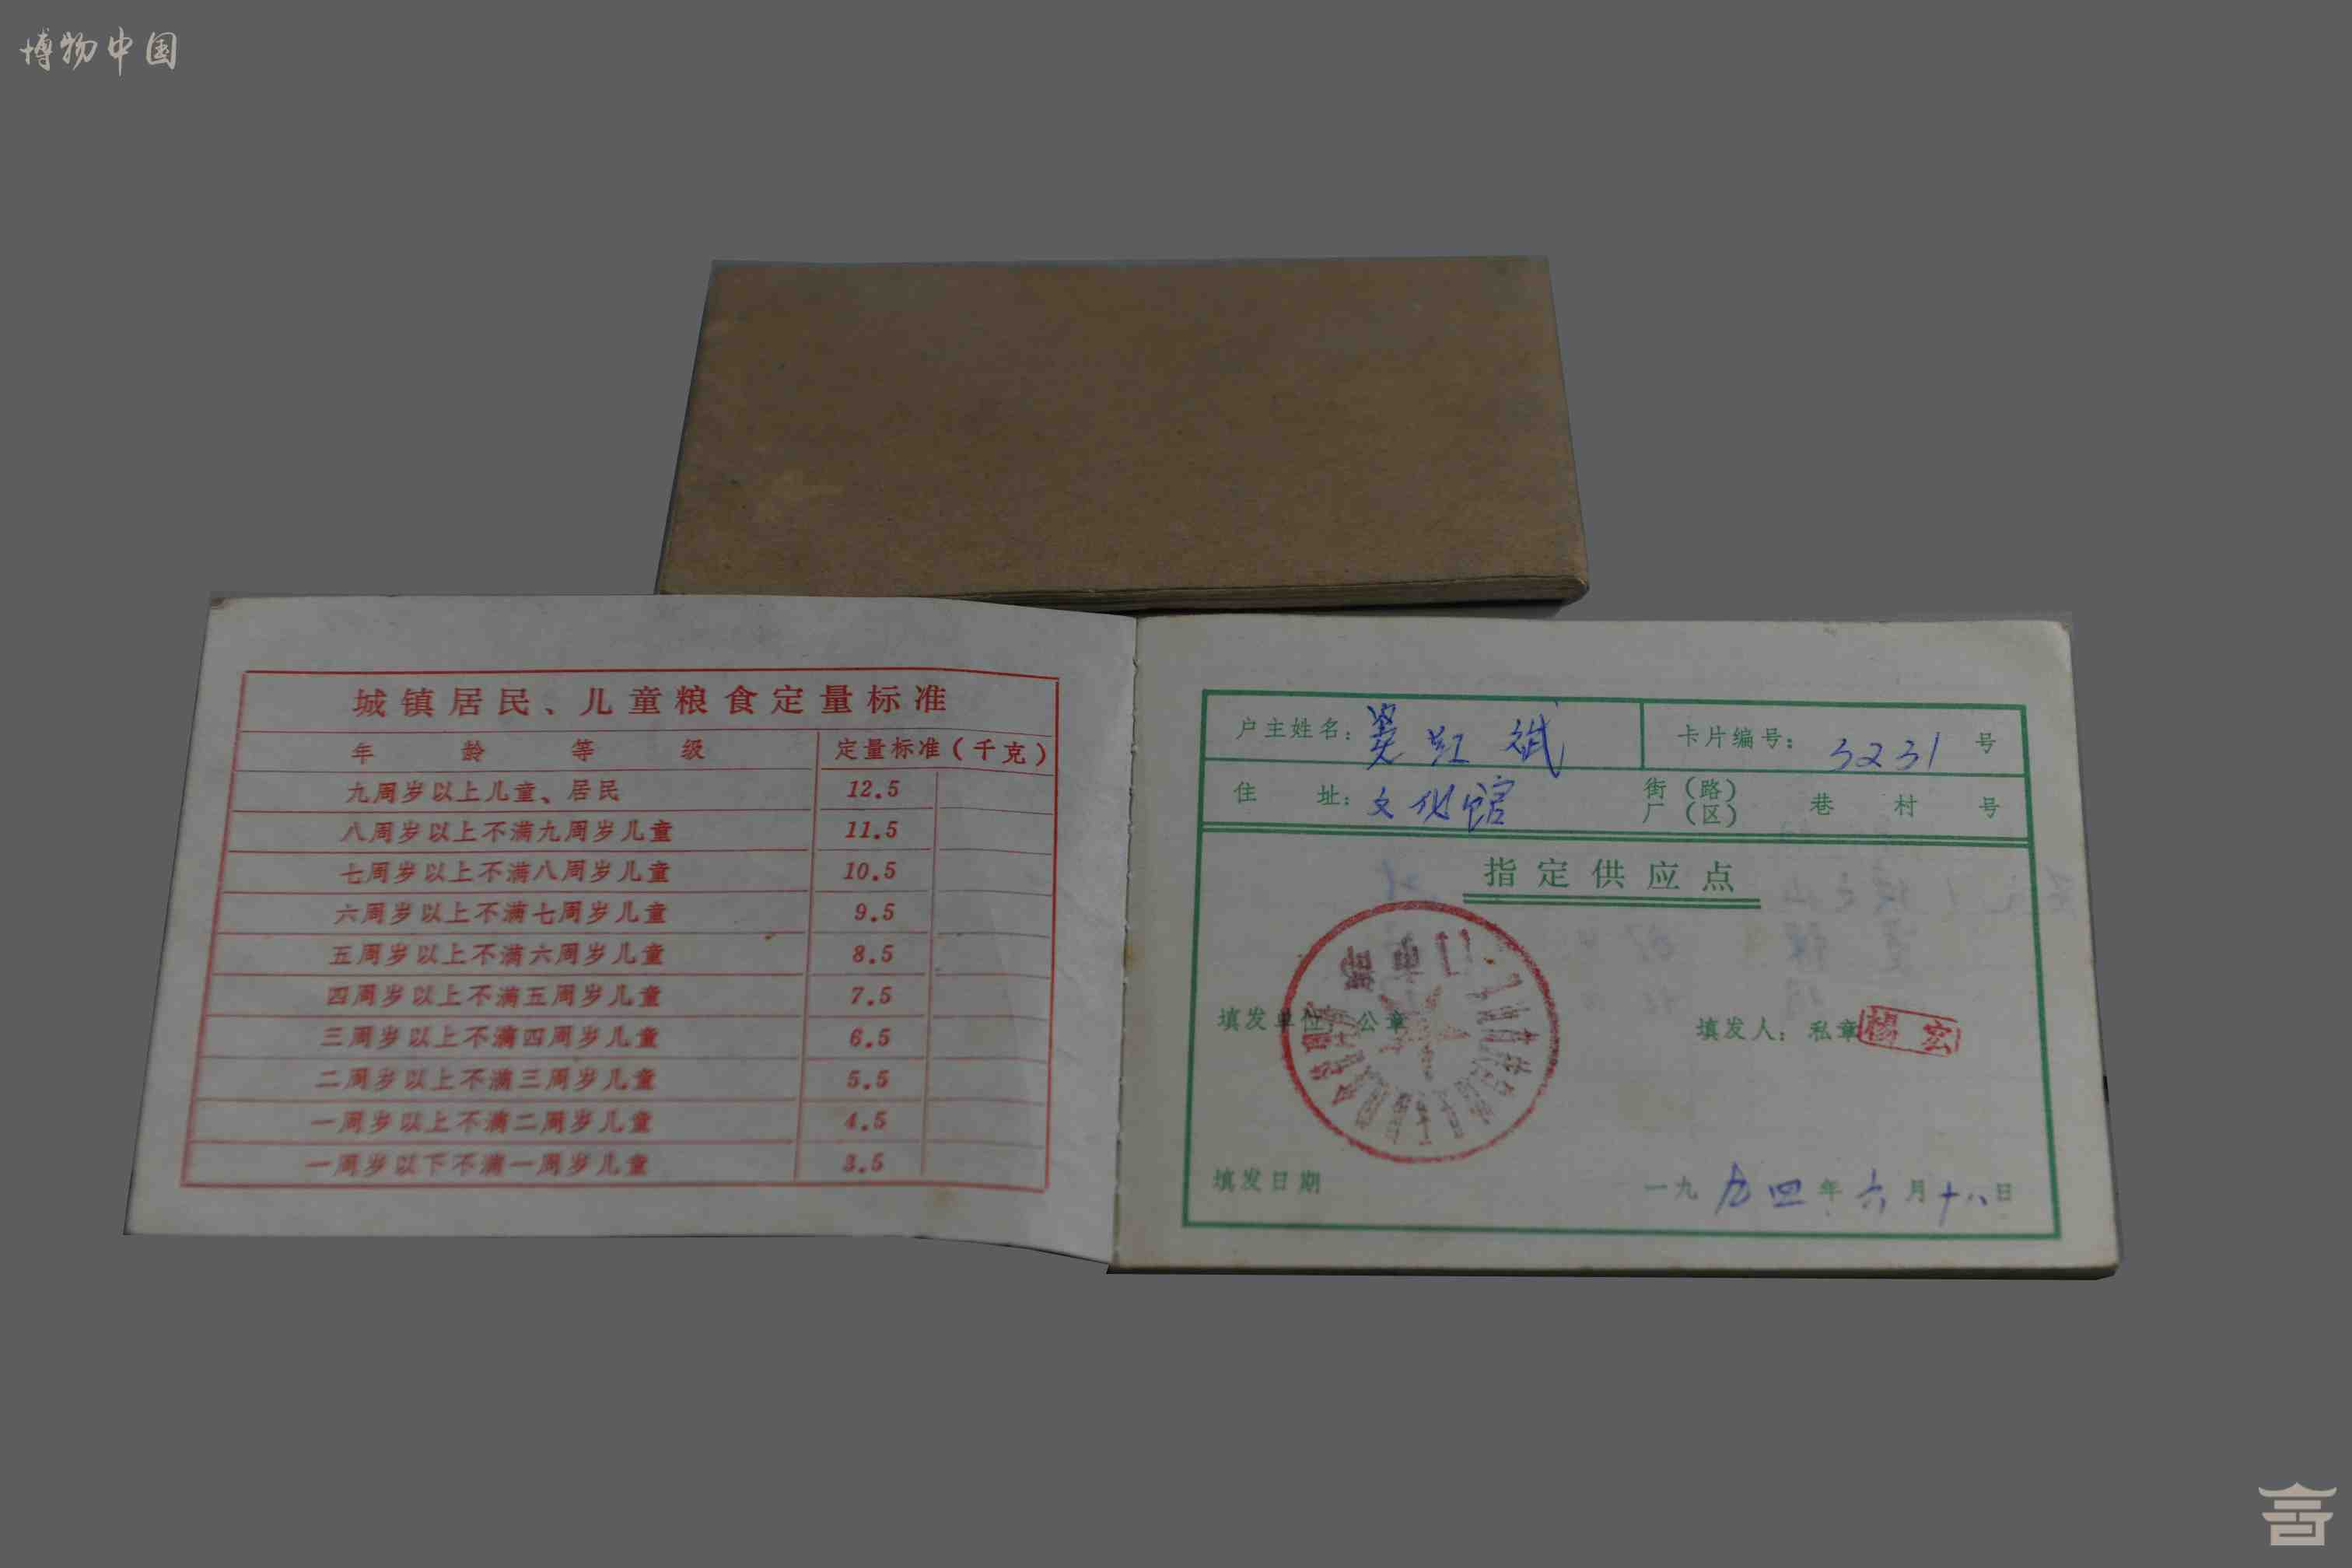 博物中国
城镇居民、儿童粮食定量标准
年龄等级 定量标准(千克)
九周岁以上儿童、居民 12.5
八周岁以上不满九周岁儿童 11.5
七周岁以上不满八周岁儿童 10.5
六周岁以上不满七周岁儿童 9.5
五周岁以上不满六周岁儿童 8.5
四周岁以上不满五周岁儿童 7.5
三周岁以上不满四周岁儿童 6.5
二周岁以上不满三周岁儿童 5.5
一周岁以上不满二周岁儿童 4.5
一周岁以下不满一周岁儿童 3.5
户主姓名: 红斌 卡片编号: 3231 号
住址: 文化馆 街(路) 厂(区) 巷 村 号
指定供应点
填发单位: 公章 填发人: 私章 杨宏
填发日期 一九九四年六月十八日